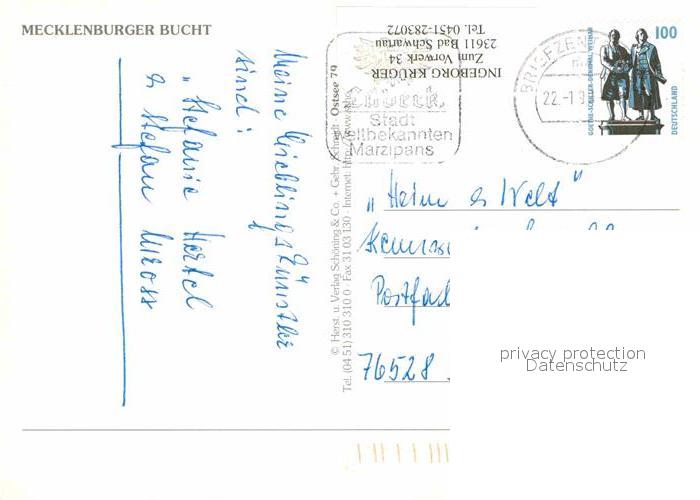 MECKLENBURGER BUCHT
Meine Lieblingskünstler
sind:
"Stefanie Hertel
& Stefan Mross
© Herst. u. Verlag Schöning & Co. + Gebr. Schmidt · Ostsee 79
Tel. (04 51) 310 310 0 · Fax 31 03 130 · Internet: http://www.
INGEBORG KRÜGER
Zum Vorwerk 34
23611 Bad Schwartau
Tel. 0451-283072
Lübeck
Stadt
weltbekannten
Marzipans
BRIEFZEN
22.-1.9
100
GOETHE-SCHILLER-DENKMAL WEIMAR
DEUTSCHLAND
"Heim & Welt"
Postfach
76528
privacy protection
Datenschutz